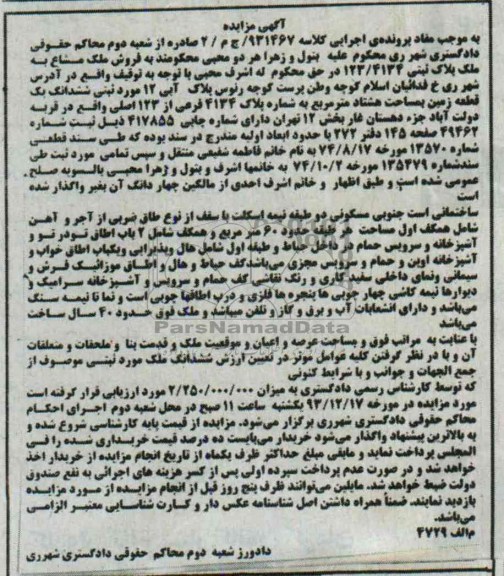 آگهی مزایده
به موجب مفاد پرونده‌ی اجرایی کلاسه ۹۳۱۴۶۷/ ج م / ۲ صادره از شعبه دوم محاکم حقوقی
دادگستری شهر ری محکوم علیه بتول و زهرا هر دو محبی محکومند به فروش ملک مشاع به
ملک پلاک ثبتی ۱۲۳/۴۱۳۴ در حق محکوم له اشرف محبی با توجه به توقیف واقع در آدرس
شهر ری خ فدائیان اسلام کوچه وطن پرست کوچه رئوس پلاک آبی ۱۲ مورد ثبتی ششدانگ یک
قطعه زمین بمساحت هشتاد مترمربع به شماره پلاک ۴۱۳۴ فرعی از ۱۲۳ اصلی واقع در قریه
دولت آباد جزء دهستان غار بخش ۱۲ تهران دارای شماره چاپی ۴۱۷۸۵۵ ذیل ثبت شماره
۴۹۴۶۲ صفحه ۱۴۵ دفتر ۲۷۲ با حدود ابعاد اولیه مندرج در سند بوده که طی سند قطعی
شماره ۱۳۵۷۰ مورخه ۷۴/۸/۱۷ به نام خانم فاطمه شفیعی منتقل و سپس تمامی مورد ثبت طی
سندشماره ۱۳۵۴۷۹ مورخه ۷۴/۱۰/۲ به خانمها اشرف و بتول و زهرا محبی بالسویه صلح
عمومی شده است و طبق اظهار و خانم اشرف احدی از مالکین چهار دانگ آن بغیر واگذار شده
است
ساختمانی است جنوبی مسکونی دو طبقه نیمه اسکلت با سقف از نوع طاق ضربی از آجر و آهن
شامل همکف اول مساحت هر طبقه حدود ۶۰ متر مربع و همکف شامل ۲ باب اطاق تودر تو و
آشپزخانه و سرویس حمام در داخل حیاط و طبقه اول شامل هال وپذیرایی ویکباب اطاق خواب و
آشپزخانه اوپن و حمام و سرویس مجزی می‌باشد.کف حیاط و هال و اطاق موزائیک فرش و
سیمانی ونمای داخلی سفید کاری و رنگ نقاشی کف حمام و سرویس و آشپزخانه سرامیک و
دیوارها نیمه کاشی چهار چوبی ها پنجره ها فلزی و درب اطاقها چوبی است و نما تا نیمه سنگ
می‌باشد و دارای انشعابات آب و برق و گاز و تلفن میباشد و ملک فوق حدود ۴۰ سال ساخت
می‌باشد
با عنایت به مراتب فوق و مساحت عرصه و اعیان و موقعیت ملک و قدمت بنا و ملحقات و متعلقات
آن و با در نظر گرفتن کلیه عوامل موثر در تعیین ارزش ششدانگ ملک مورد ثبتی موصوف از
جمع الجهات و جوانب و با شرایط کنونی
که توسط کارشناس رسمی دادگستری به میزان ۲/۲۵۰/۰۰۰/۰۰۰ مورد ارزیابی قرار گرفته است
مورد مزایده در مورخه ۹۳/۱۲/۱۷ یکشنبه ساعت ۱۱ صبح در محل شعبه دوم اجرای احکام
محاکم حقوقی دادگستری شهرری برگزار می‌شود. مزایده از قیمت پایه کارشناسی شروع شده و
به بالاترین پیشنهاد واگذار می‌شود خریدار می‌بایست ده درصد قیمت خریداری شده را فی
المجلس پرداخت نماید و مابقی مبلغ حداکثر ظرف یکماه از تاریخ انجام مزایده از خریدار اخذ
خواهد شد و در صورت عدم پرداخت سپرده اولی پس از کسر هزینه های اجرائی به نفع صندوق
دولت ضبط خواهد شد. مایلین می‌توانند ظرف پنج روز قبل از انجام مزایده از مورد مزایده
بازدید نمایند. ضمناً همراه داشتن اصل شناسنامه عکس دار و کارت شناسایی معتبر الزامی
می‌باشد.
م‌الف ۴۷۲۹
دادورز شعبه دوم محاکم حقوقی دادگستری شهرری
ParsNamadData